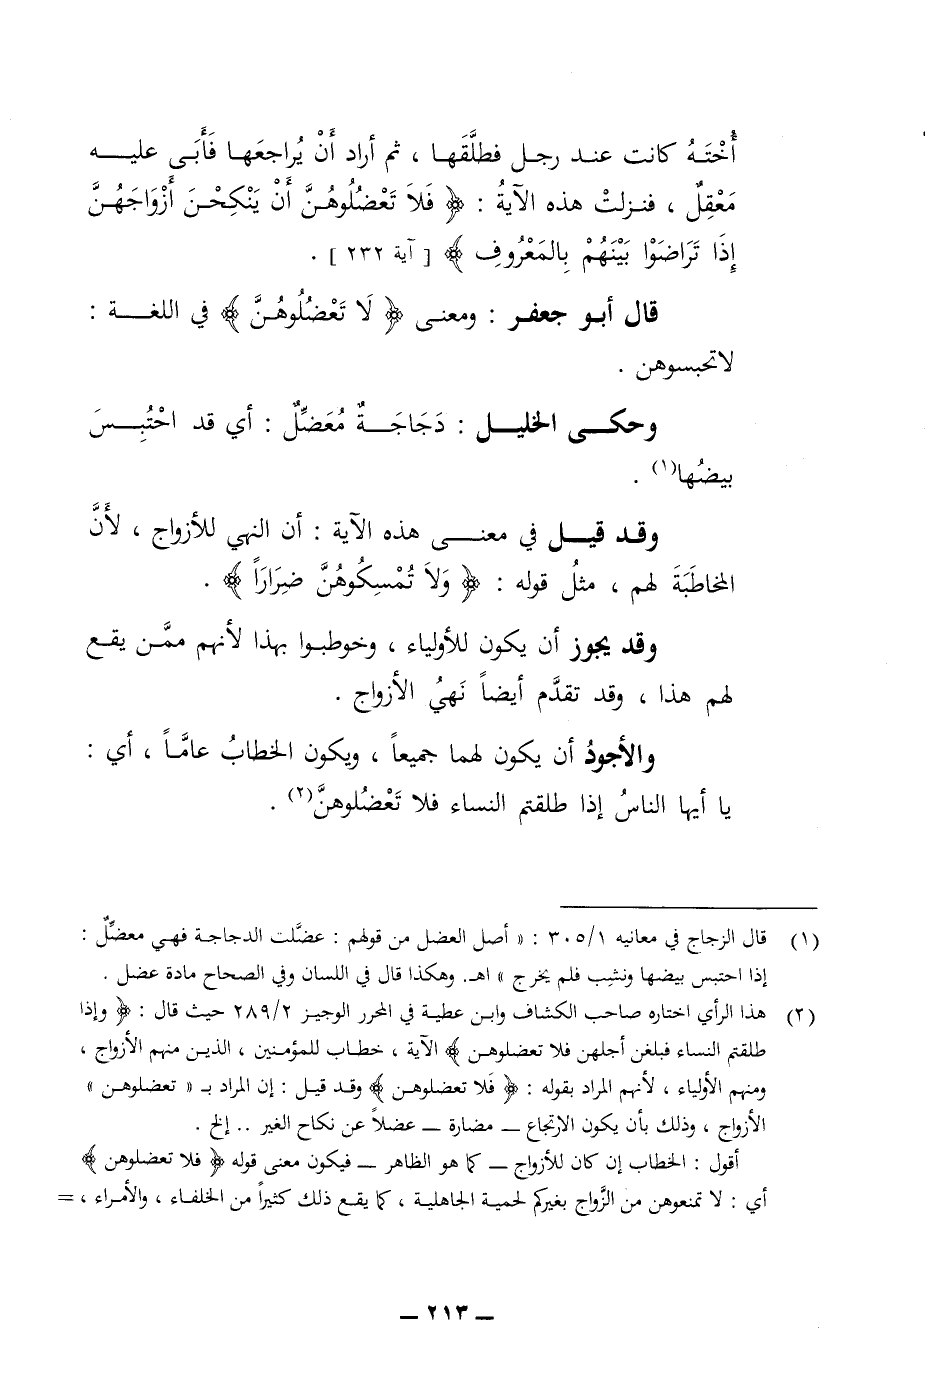 أُخْتَهُ كانت عند رجل فطلَّقَها ، ثم أراد أَنْ يُراجعَها فَأَبَى عليه
مَعْقِلٌ ، فنزلتْ هذه الآيةُ : ﴿ فَلَا تَعْضُلُوهُنَّ أَنْ يَنْكِحْنَ أَزْوَاجَهُنَّ
إِذَا تَرَاضَوْا بَيْنَهُمْ بِالمَعْرُوفِ ﴾ [ آية ٢٣٢ ] .
قال أبو جعفر : ومعنى ﴿ لَا تَعْضُلُوهُنَّ ﴾ في اللغة :
لاتحبسوهن .
وحكى الخليل : دَجَاجَةٌ مُعَضِّلٌ : أي قد احْتُبِسَ
بيضُها(١) .
وقد قيل في معنى هذه الآية : أن النهي للأزواج ، لأَنَّ
المخاطَبَةَ لهم ، مثلُ قوله : ﴿ وَلَا تُمْسِكُوهُنَّ ضِرَارَاً ﴾ .
وقد يجوز أن يكون للأولياء ، وخوطبوا بهذا لأنهم ممَّن يقع
لهم هذا ، وقد تقدَّم أيضاً نَهيُ الأزواج .
والأجودُ أن يكون لهما جميعاً ، ويكون الخطابُ عامَّاً ، أي :
يا أيها الناسُ إذا طلقتم النساء فلا تَعْضُلوهنَّ(٢) .
(١) قال الزجاج في معانيه ٣٠٥/١ : « أصل العضل من قولهم : عضَّلت الدجاجة فهي معضِّلٌ :
إذا احتبس بيضها ونشِب فلم يخرج » اهـ. وهكذا قال في اللسان وفي الصحاح مادة عضل .
(٢) هذا الرأي اختاره صاحب الكشاف وابن عطية في المحرر الوجيز ٢٨٩/٢ حيث قال : ﴿ وإذا
طلقتم النساء فبلغن أجلهن فلا تعضلوهن ﴾ الآية ، خطاب للمؤمنين ، الذين منهم الأزواج ،
ومنهم الأولياء ، لأنهم المراد بقوله : ﴿ فَلا تعضلوهن ﴾ وقد قيل : إن المراد بـ « تعضلوهن »
الأزواج ، وذلك بأن يكون الارتجاع ــ مضارة ــ عضلاً عن نكاح الغير .. إلخ .
أقول : الخطاب إن كان للأزواج ــ كما هو الظاهر ــ فيكون معنى قوله ﴿ فلا تعضلوهن ﴾
أي : لا تمنعوهن من الزَّواج بغيركم لحمية الجاهلية ، كما يقع ذلك كثيراً من الخلفاء ، والأمراء ، =
ــ ٢١٣ ــ